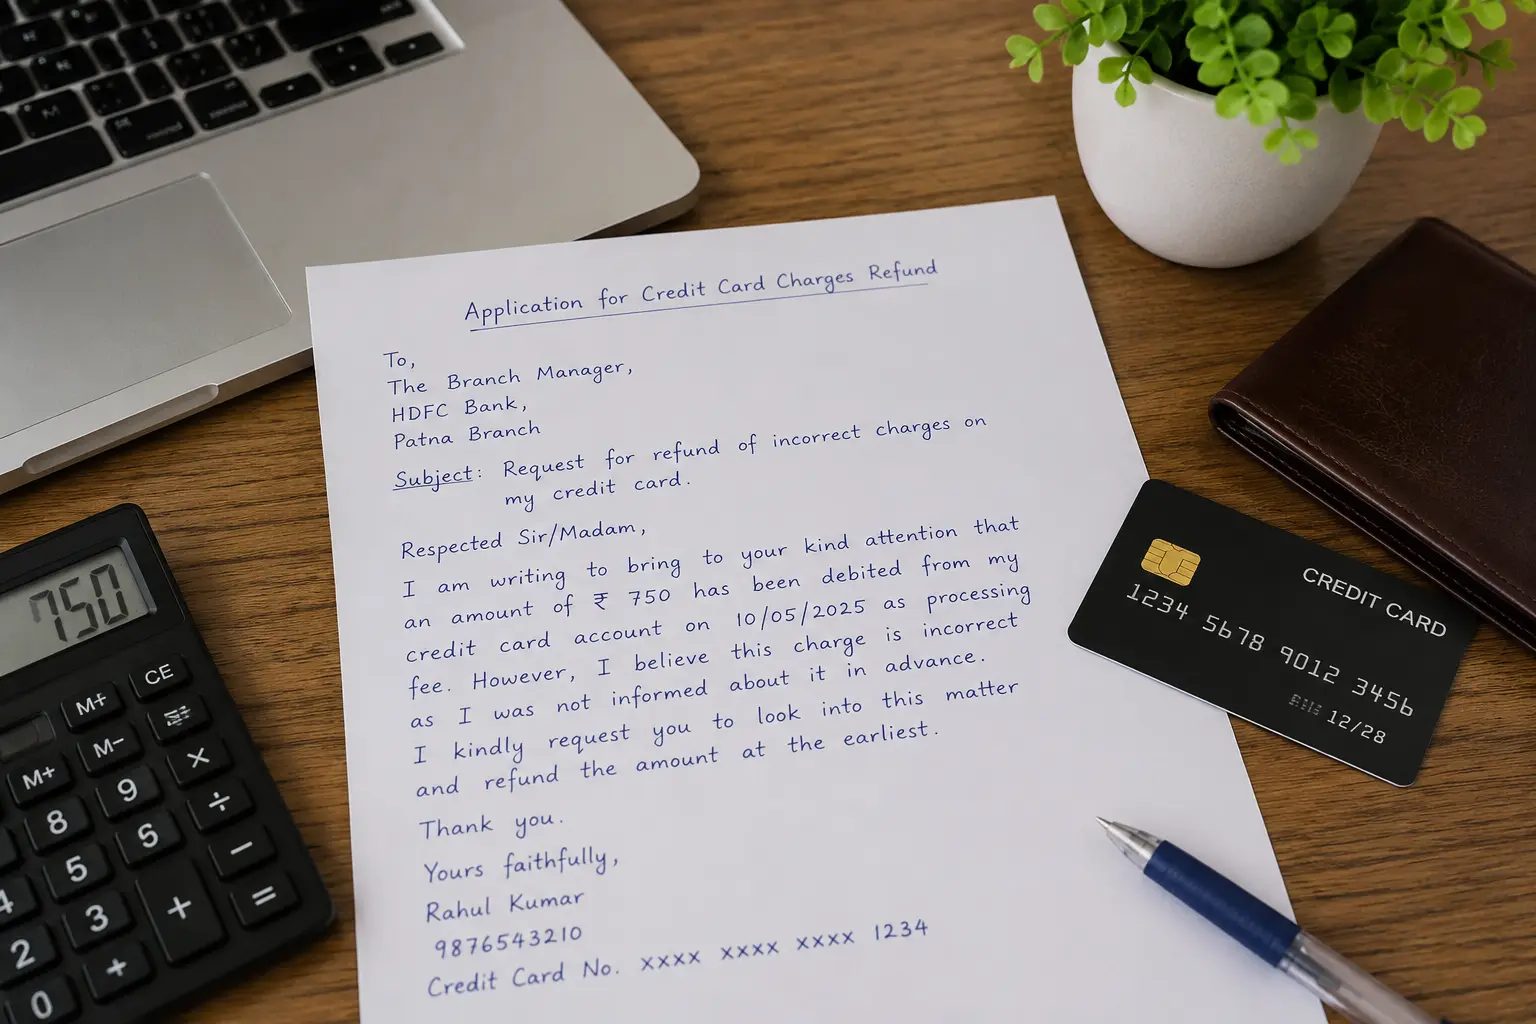 Application for Credit Card Charges Refund
To,
The Branch Manager,
HDFC Bank,
Patna Branch
Subject: Request for refund of incorrect charges on
my credit card.
Respected Sir/Madam,
I am writing to bring to your kind attention that
an amount of ₹ 750 has been debited from my
credit card account on 10/05/2025 as processing
fee. However, I believe this charge is incorrect
as I was not informed about it in advance.
I kindly request you to look into this matter
and refund the amount at the earliest.
Thank you.
Yours faithfully,
Rahul Kumar
9876543210
Credit Card No. xxxx xxxx xxxx 1234
CREDIT CARD
1234 5678 9012 3456
12/28
750
CE
M+
M-
M+
×
9
8
÷
5
5
−
4
3
+
=
2
+
0